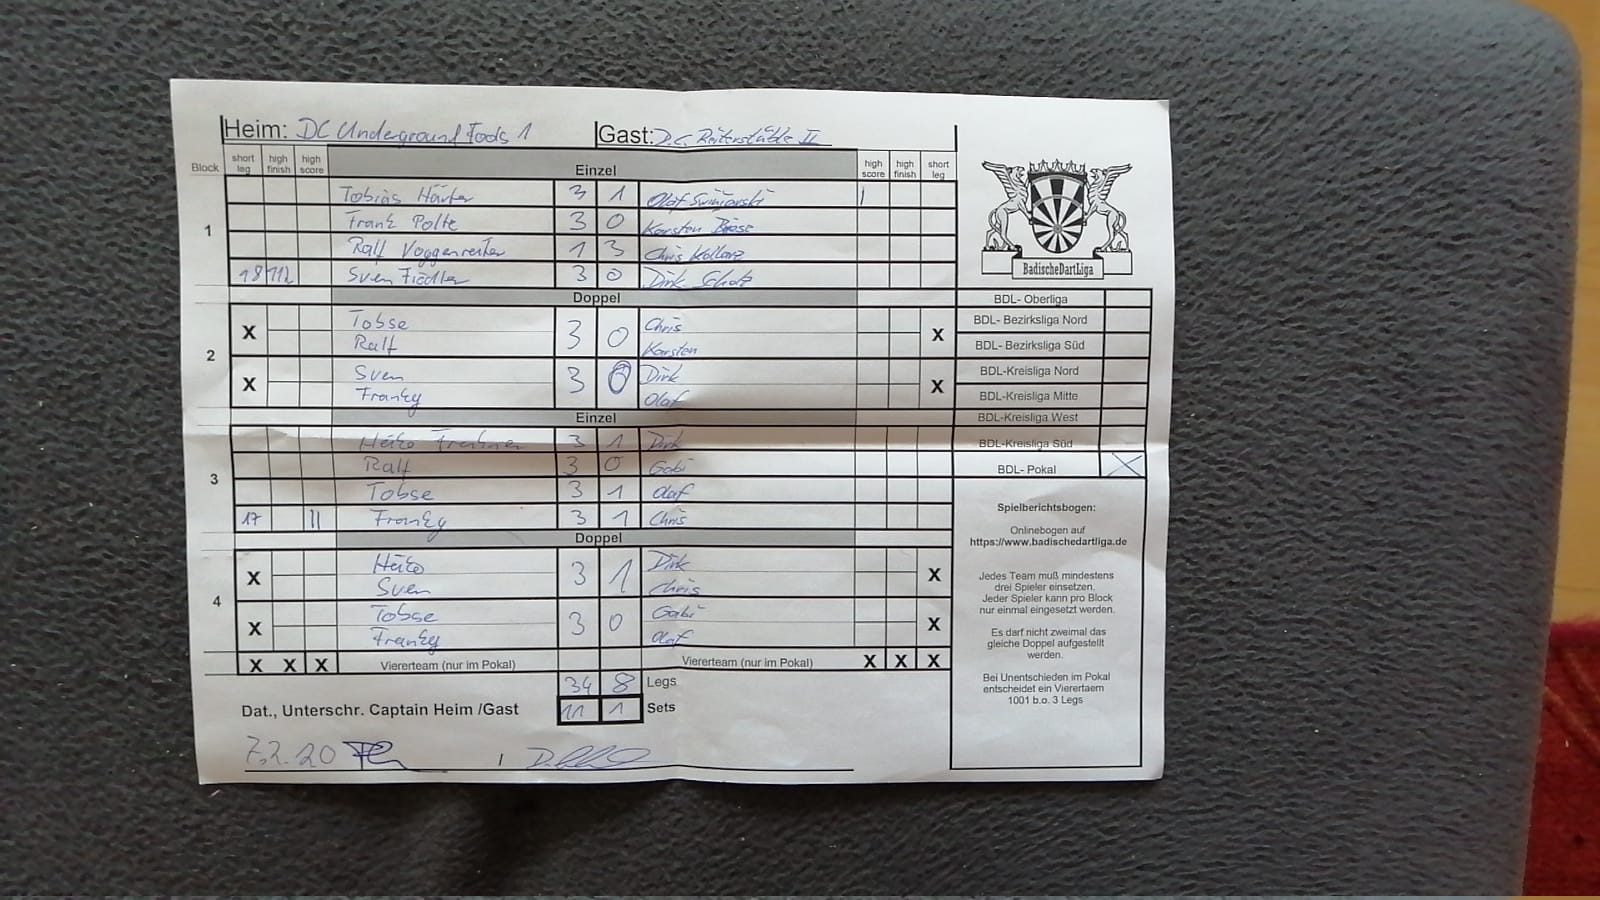 Heim: DC Underground Fools 1 Gast: D.C. Reiterstüble II
Block short leg high finish high score Einzel high score high finish short leg
1
Tobias Härter 3 1 Olaf |
Frank Polte 3 0 Karsten
Ralf Voggenreiter 1 3 Chris Kollorz
18 112 Sven Fiedler 3 0 Dirk Scholz
Doppel
2
X Tobse 3 0 Chris X
Ralf Karsten
X Sven 3 0 Dirk X
Franky Olaf
Einzel
3
Heiko 3 1 Dirk
Ralf 3 0 Gabi
Tobse 3 1 Olaf
17 || Franky 3 1 Chris
Doppel
4
X Heiko 3 1 Dirk X
Sven Chris
X Tobse 3 0 Gabi X
Franky Olaf
X X X Viererteam (nur im Pokal) Viererteam (nur im Pokal) X X X
34 8 Legs
Dat., Unterschr. Captain Heim /Gast 11 1 Sets
7.2.20 /
BadischeDartLiga
BDL- Oberliga
BDL- Bezirksliga Nord
BDL- Bezirksliga Süd
BDL-Kreisliga Nord
BDL-Kreisliga Mitte
BDL-Kreisliga West
BDL-Kreisliga Süd
BDL- Pokal X
Spielberichtsbogen:
Onlinebogen auf
https://www.badischedartliga.de
Jedes Team muß mindestens
drei Spieler einsetzen.
Jeder Spieler kann pro Block
nur einmal eingesetzt werden.
Es darf nicht zweimal das
gleiche Doppel aufgestellt
werden.
Bei Unentschieden im Pokal
entscheidet ein Vierertaem
1001 b.o. 3 Legs